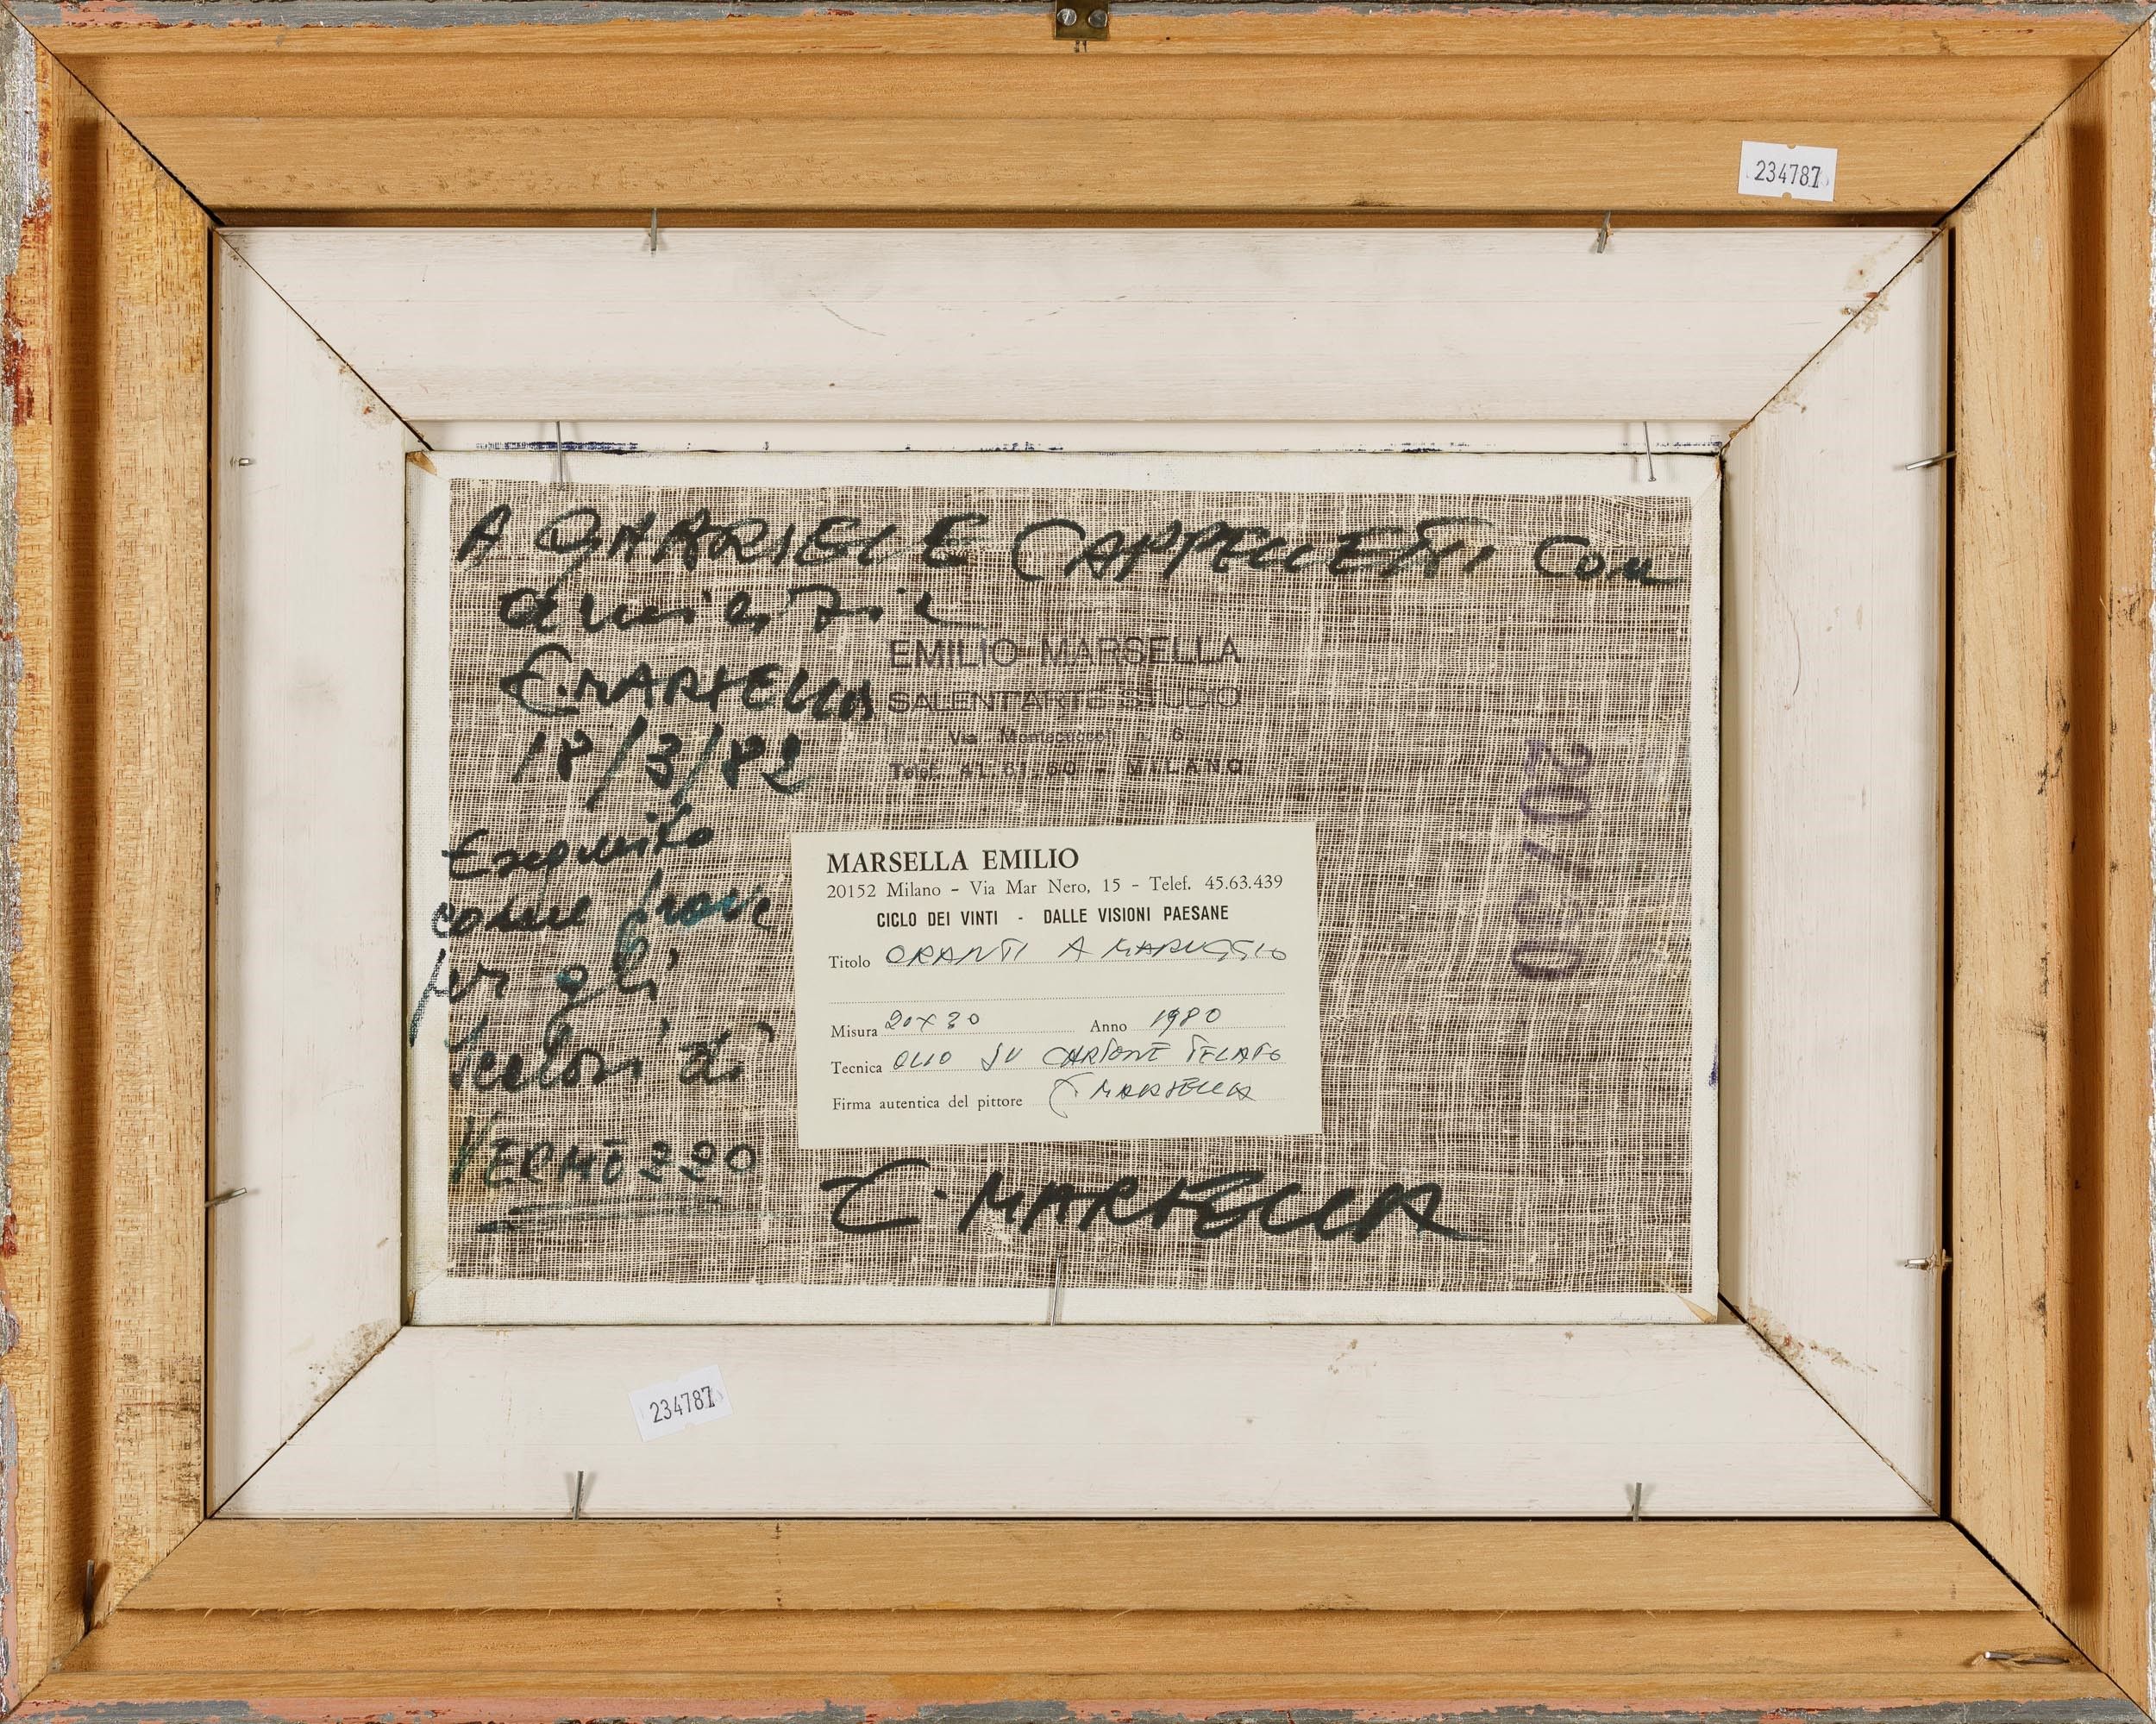 234787
A GABRIELE CAPPELLETTI con
amicizia
E. MARSELLA
18/3/82
EMILIO MARSELLA
SALENT'ARTE STUDIO
Via Montecuccoli n. 6
Telef. 41.61.60 - MILANO
20/30
Eseguito
come prove
per gli
di
MARSELLA EMILIO
20152 Milano - Via Mar Nero, 15 - Telef. 45.63.439
CICLO DEI VINTI - DALLE VISIONI PAESANE
Titolo ORANTI A MARUGGIO
Misura 20x30 Anno 1980
Tecnica OLIO SU CARTONE TELATO
Firma autentica del pittore E. MARSELLA
E. MARSELLA
234787